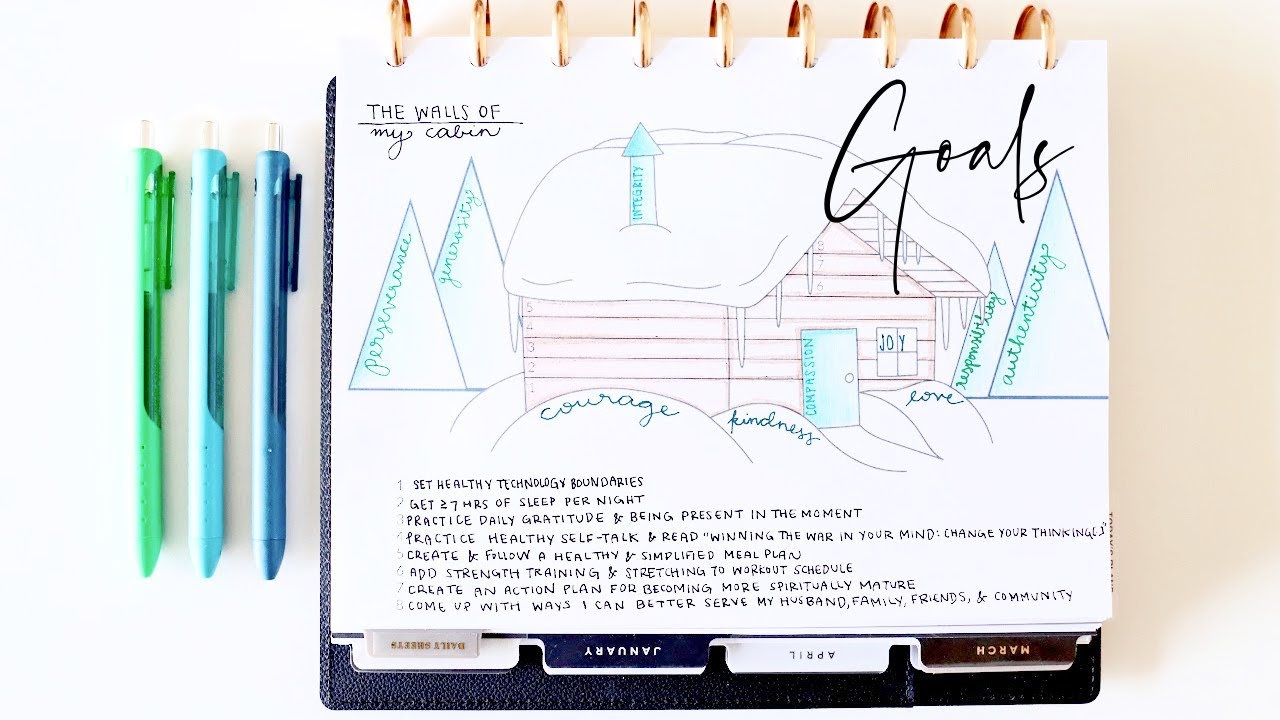 THE WALLS OF
my cabin
Goals
INTEGRITY
perseverance
generosity
responsibility
authenticity
8
7
6
5
4
3
2
1
COMPASSION
JOY
courage
kindness
love
1 SET HEALTHY TECHNOLOGY BOUNDARIES
2 GET ≥7 HRS OF SLEEP PER NIGHT
3 PRACTICE DAILY GRATITUDE & BEING PRESENT IN THE MOMENT
4 PRACTICE HEALTHY SELF-TALK & READ "WINNING THE WAR IN YOUR MIND: CHANGE YOUR THINKING(...)"
5 CREATE & FOLLOW A HEALTHY & SIMPLIFIED MEAL PLAN
6 ADD STRENGTH TRAINING & STRETCHING TO WORKOUT SCHEDULE
7 CREATE AN ACTION PLAN FOR BECOMING MORE SPIRITUALLY MATURE
8 COME UP WITH WAYS I CAN BETTER SERVE MY HUSBAND, FAMILY, FRIENDS, & COMMUNITY
DAILY SHEETS
JANUARY
APRIL
MARCH